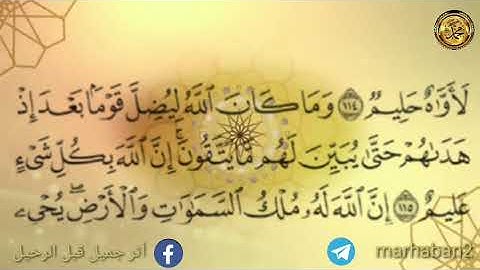 لَأَوَّٰهٌ حَلِيمٌ ١١٤ وَمَا كَانَ ٱللَّهُ لِيُضِلَّ قَوْمَۢا بَعْدَ إِذْ
هَدَىٰهُمْ حَتَّىٰ يُبَيِّنَ لَهُم مَّا يَتَّقُونَۚ إِنَّ ٱللَّهَ بِكُلِّ شَىْءٍ
عَلِيمٌ ١١٥ إِنَّ ٱللَّهَ لَهُۥ مُلْكُ ٱلسَّمَٰوَٰتِ وَٱلْأَرْضِۖ يُحْىِۦ
أثر جميل قبل الرحيل
marhaban2